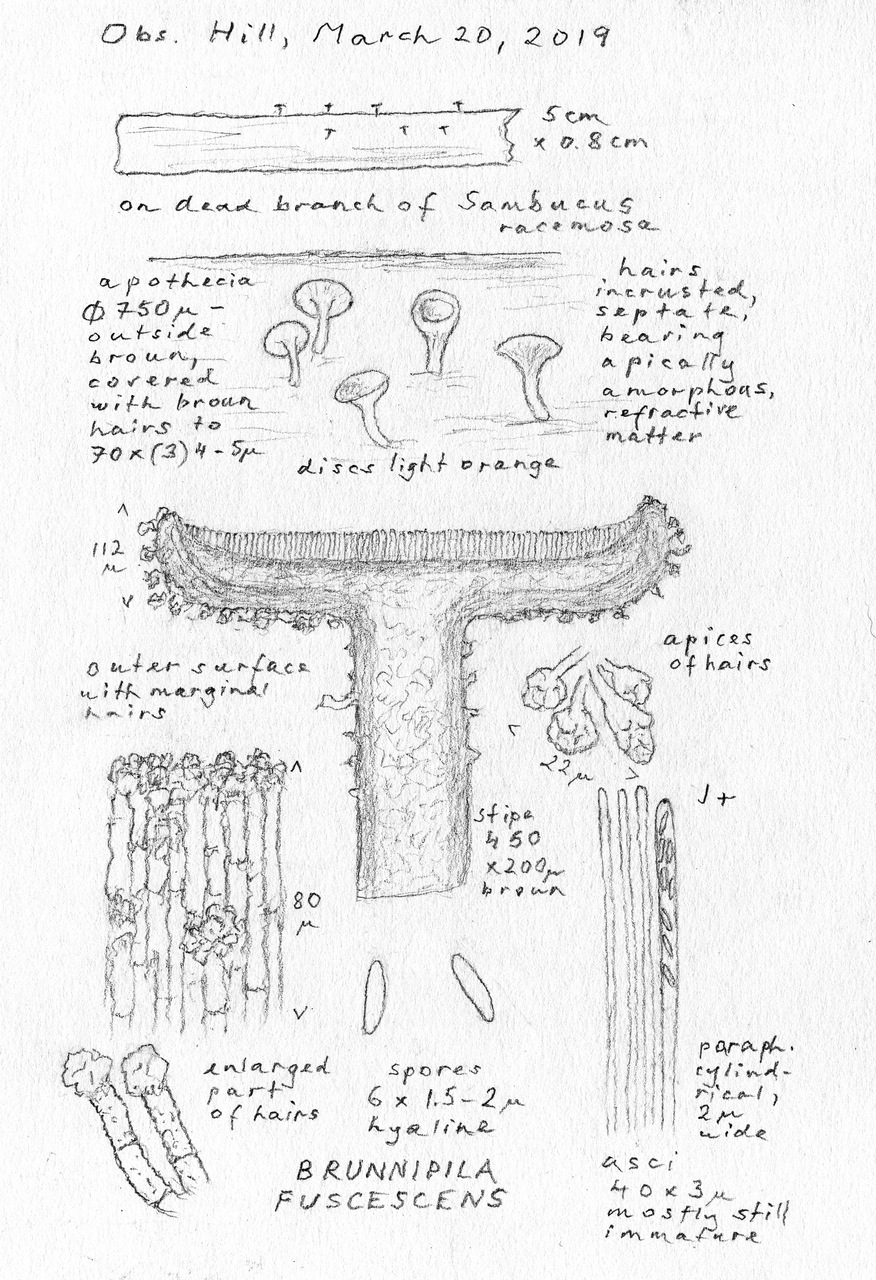 Obs. Hill, March 20, 2019
5 cm
x 0.8 cm
on dead branch of Sambucus
racemosa
apothecia
ϕ 750 µ -
outside
broun,
covered
with broun
hairs to
70 x (3) 4 - 5µ
hairs
incrusted,
septate,
bearing
apically
amorphous,
refractive
matter
discs light orange
112
µ
outer surface
with marginal
hairs
apices
of hairs
22 µ
stipe
450
x 200µ
brown
J+
80
µ
enlarged
part
of hairs
spores
6 x 1.5 - 2 µ
hyaline
paraph.
cylind-
rical,
2 µ
wide
BRUNNIPILA
FUSCESCENS
asci
40 x 3 µ
mostly still
immature